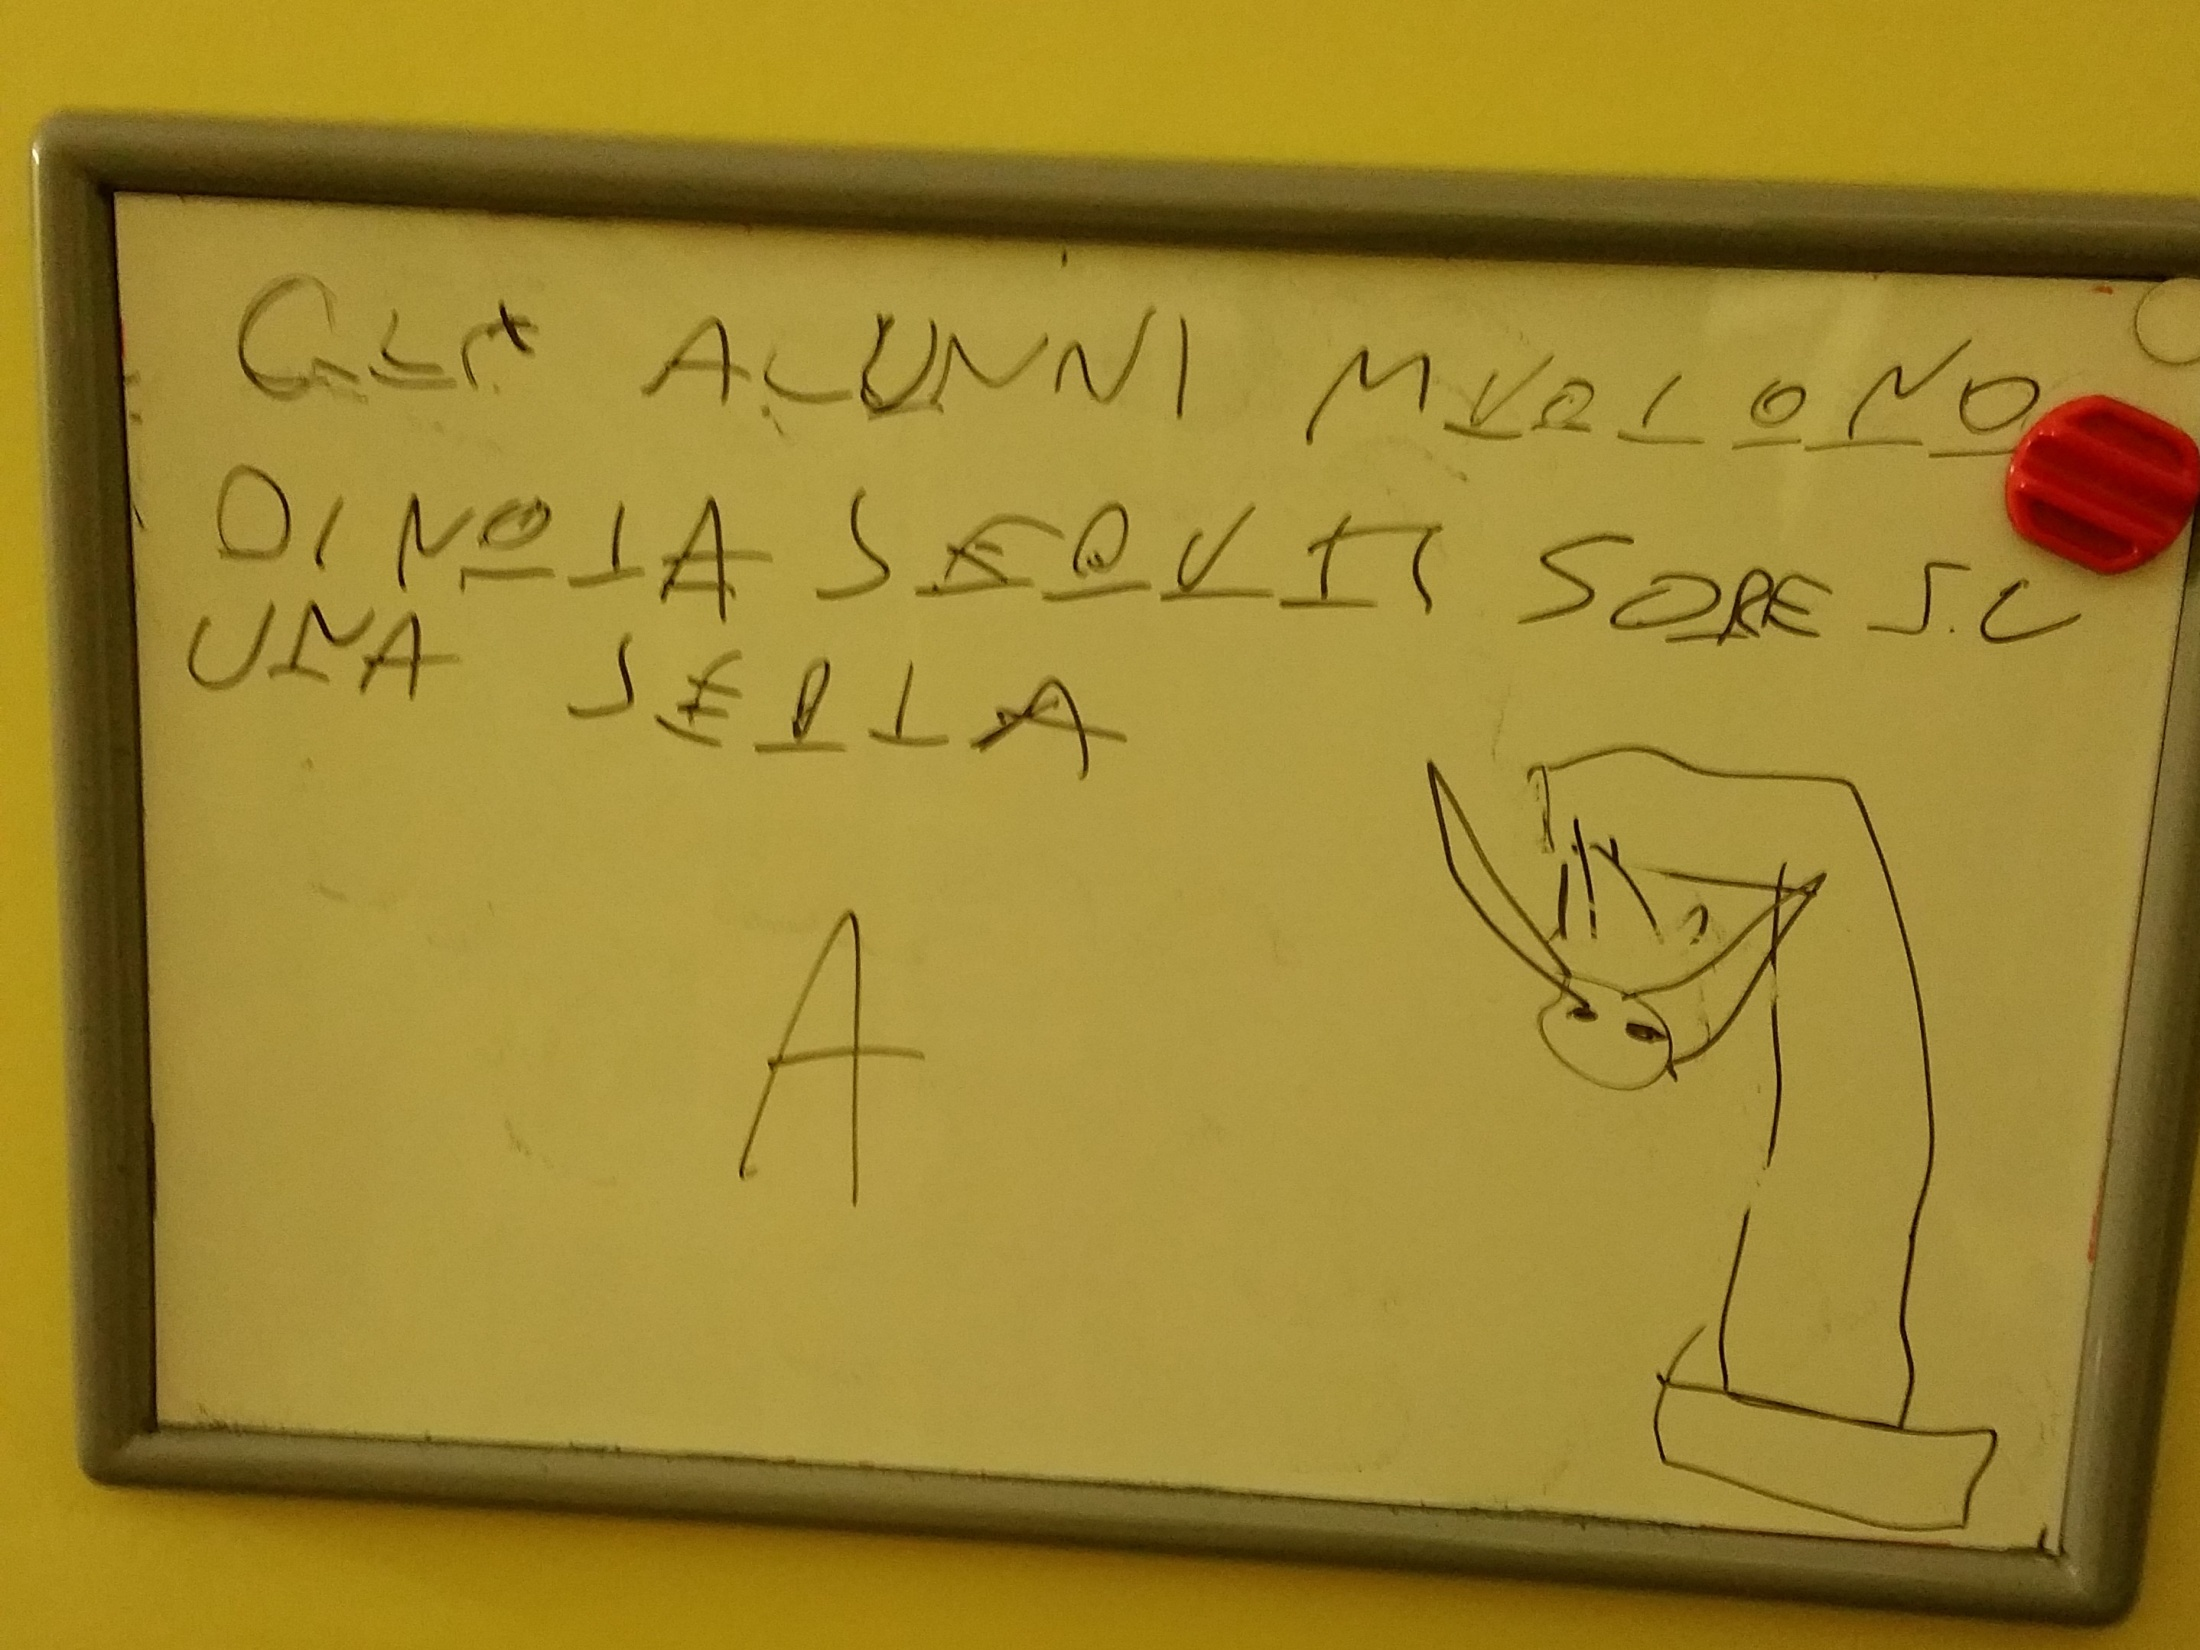 GLI ALUNNI MUOIONO
DI NOIA SEDUTI SOPRE SU
UNA SEDIA
A